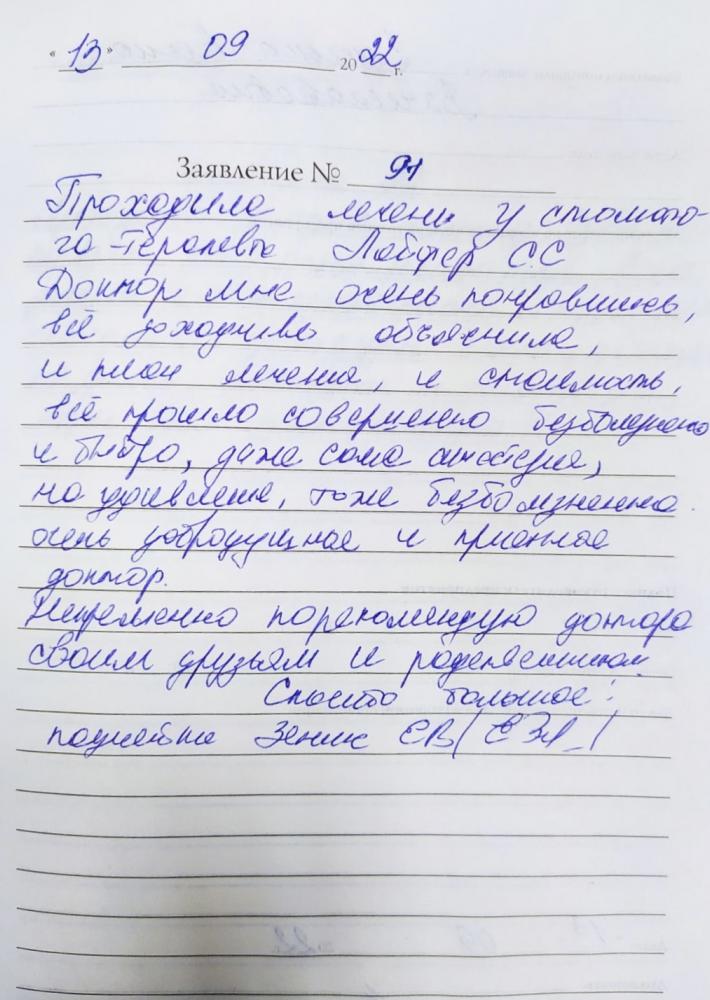 « 13 » 09 20 22 г.
Заявление № 91
Проходила лечени у стомато-
га-терапевта Лойфер С.С
Доктор мне очень понравилась,
всё доходчиво объяснила,
и план лечения, и стоимость,
всё прошло совершенно безболезненно
и быстро, даже сама анестезия,
на удивление, тоже безболезненна.
очень добродушная и приятная
доктор.
Непременно порекомендую доктора
своим друзьям и родственникам.
Спасибо большое!
пациентка Зеник ЕВ